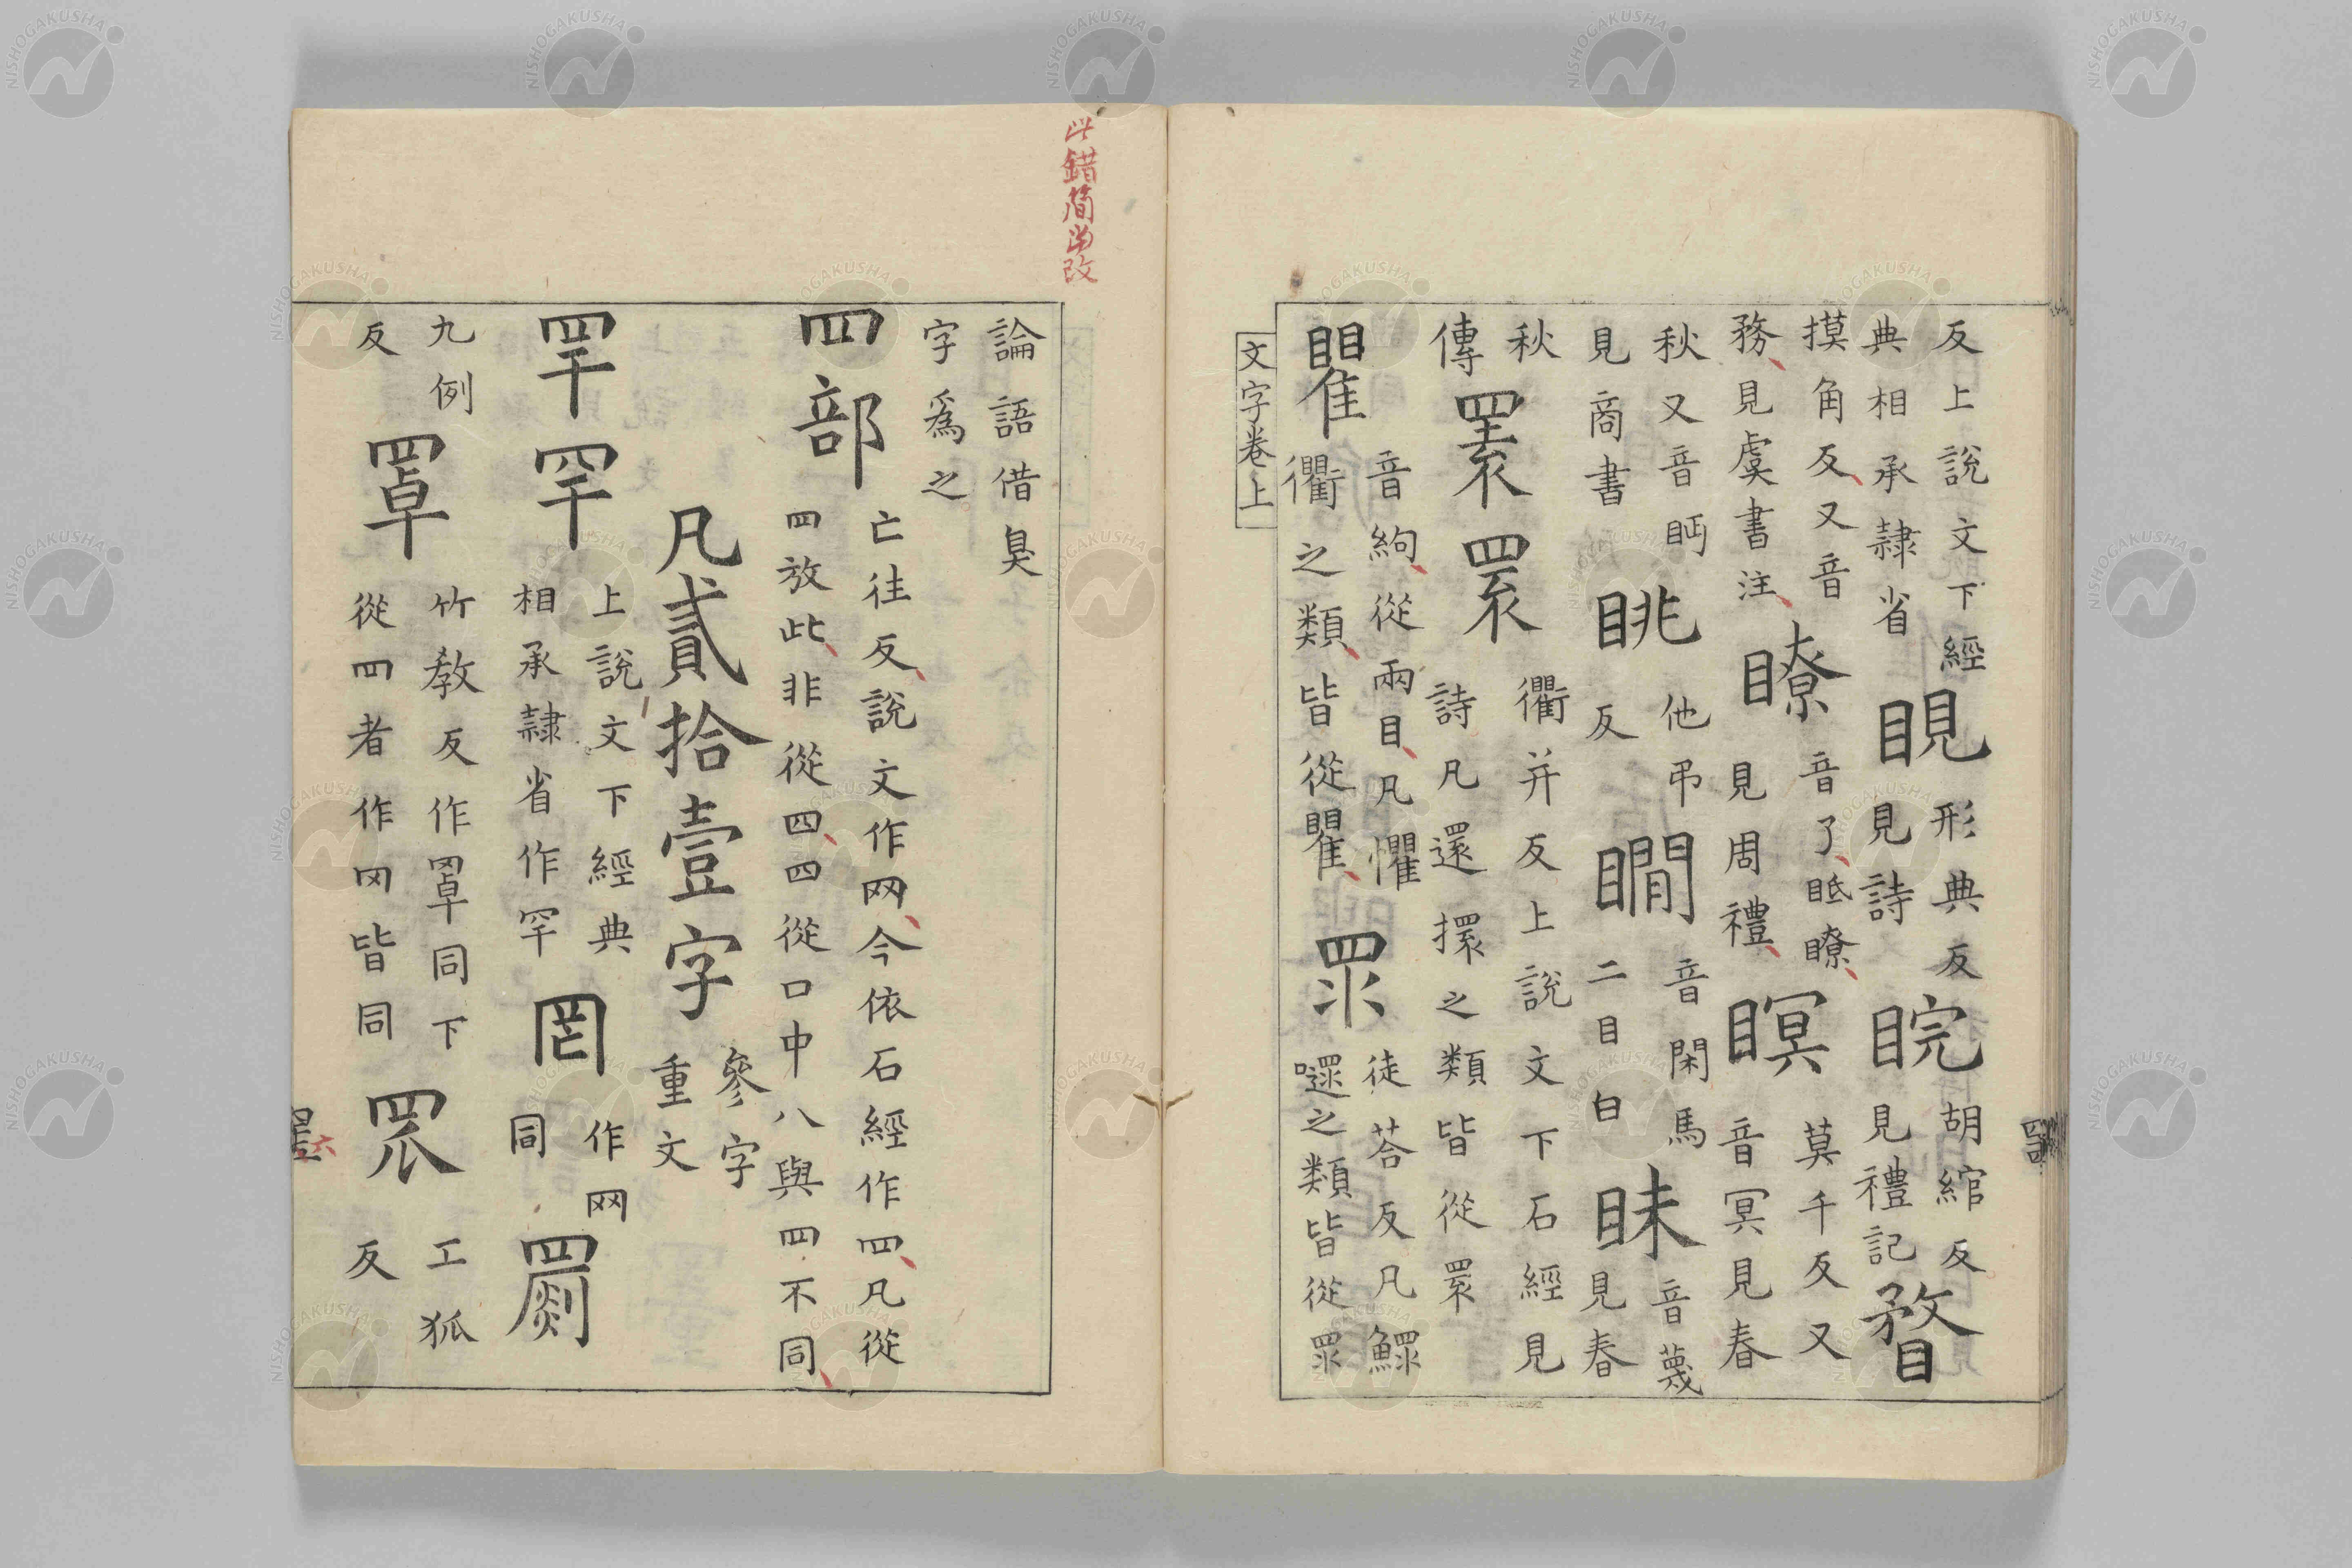 反上說文下經
典相承隸省
睍
形典反
見詩
睆
胡綰反
見禮記
瞀
摸角反又音
務見虞書注
瞭
音了眡瞭
見周禮
瞑
莫千反又
音冥見春
秋又音眄
見商書
眺
他弔
反
瞷
音閑馬
二目白
眛
音蔑
見春
秋
傳
瞏
睘
衢并反上說文下石經見
詩凡還擐之類皆從睘
瞿
音絇從兩目凡懼
衢之類皆從瞿
眔
徒荅反凡鰥
㗖之類皆從眔
文字卷上
此錯簡當改
論語借臭
字爲之
罒部
亡往反說文作网今依石經作罒凡從
罒放此非從四四從口中八與罒不同
凡貳拾壹字
參字
重文
罕
上說文下經典
相承隸省作罕
罔
作网
同
罽
九例
反
罩
竹教反作罩同下
從罒者作冈皆同
罛
工狐
反